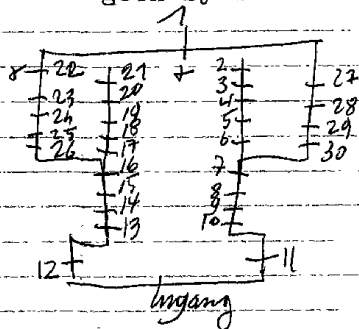 1
22 21 2 27
23 20 3 28
24 19 4 29
25 18 5 30
26 17 6
16 7
15 8
14 9
13 10
12 11
Ingang